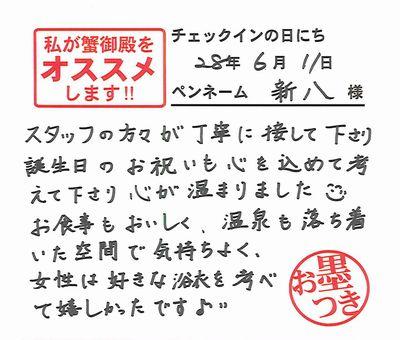 私が蟹御殿を
オススメ
します!!
チェックインの日にち
28年 6月 11日
ペンネーム 新八 様
スタッフの方々が丁寧に接して下さり
誕生日のお祝いも心を込めて考
えて下さり心が温まりました☺
お食事もおいしく、温泉も落ち着
いた空間で気持ちよく、
女性は好きな浴衣を考べ
て嬉しかったです♪"
お墨つき